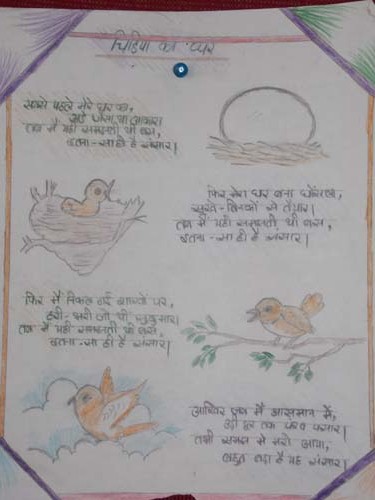 चिड़िया का घर
सबसे पहले मेरे घर का,
अंडे जैसा था आकार।
तब मैं यही समझती थी बस,
इतना-सा ही है संसार।
फिर मेरा घर बना घोंसला,
सूखे-तिनकों से तैयार।
तब मैं यही समझती थी बस,
इतना-सा ही है संसार।
फिर मैं निकल गई शाखों पर,
हरी-भरी जो थी सुकुमार।
तब मैं यही समझती थी बस,
इतना-सा ही है संसार।
आखिर जब मैं आसमान में,
उड़ी दूर तक पंख पसार।
तभी समझ में मेरी आया,
बहुत बड़ा है यह संसार।